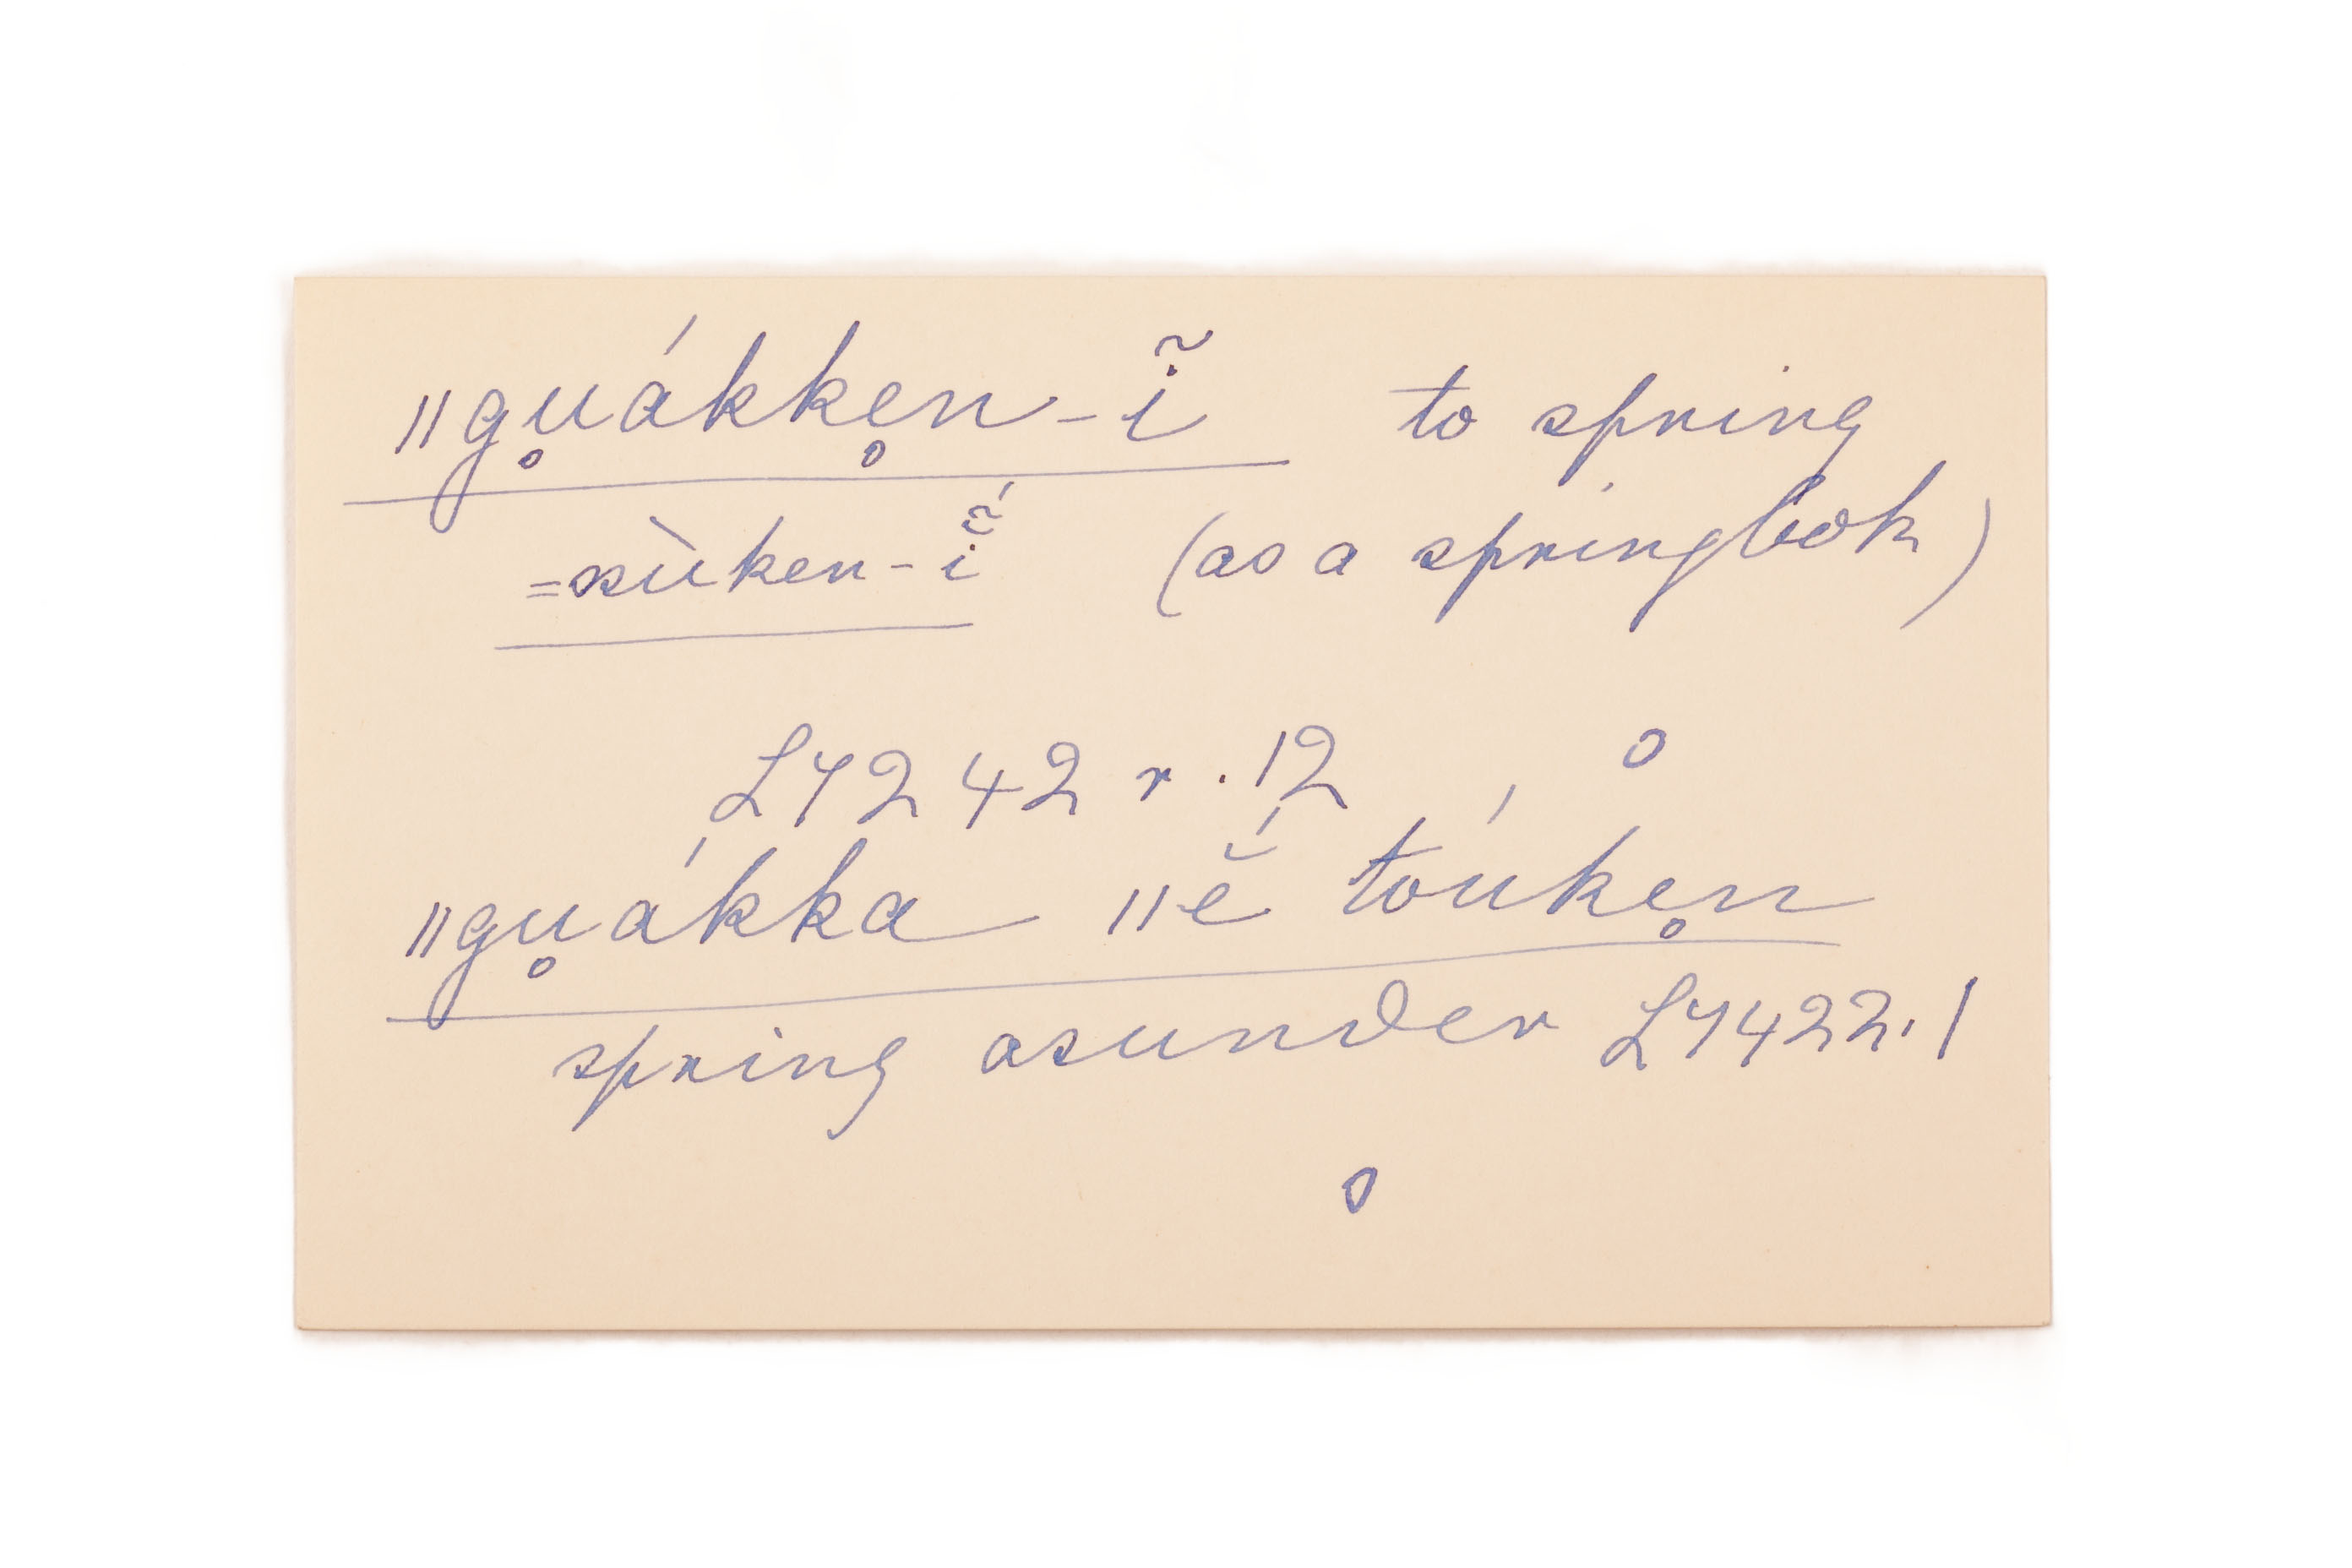 ǁgu̥ákke̥n-ĩ to spring
=xùken-ĩ́ (as a springbok)
L7242 r. 12 o
ǁgu̥ákka ǁĕ́ tóúke̥n
spring asunder L7422. 1
o